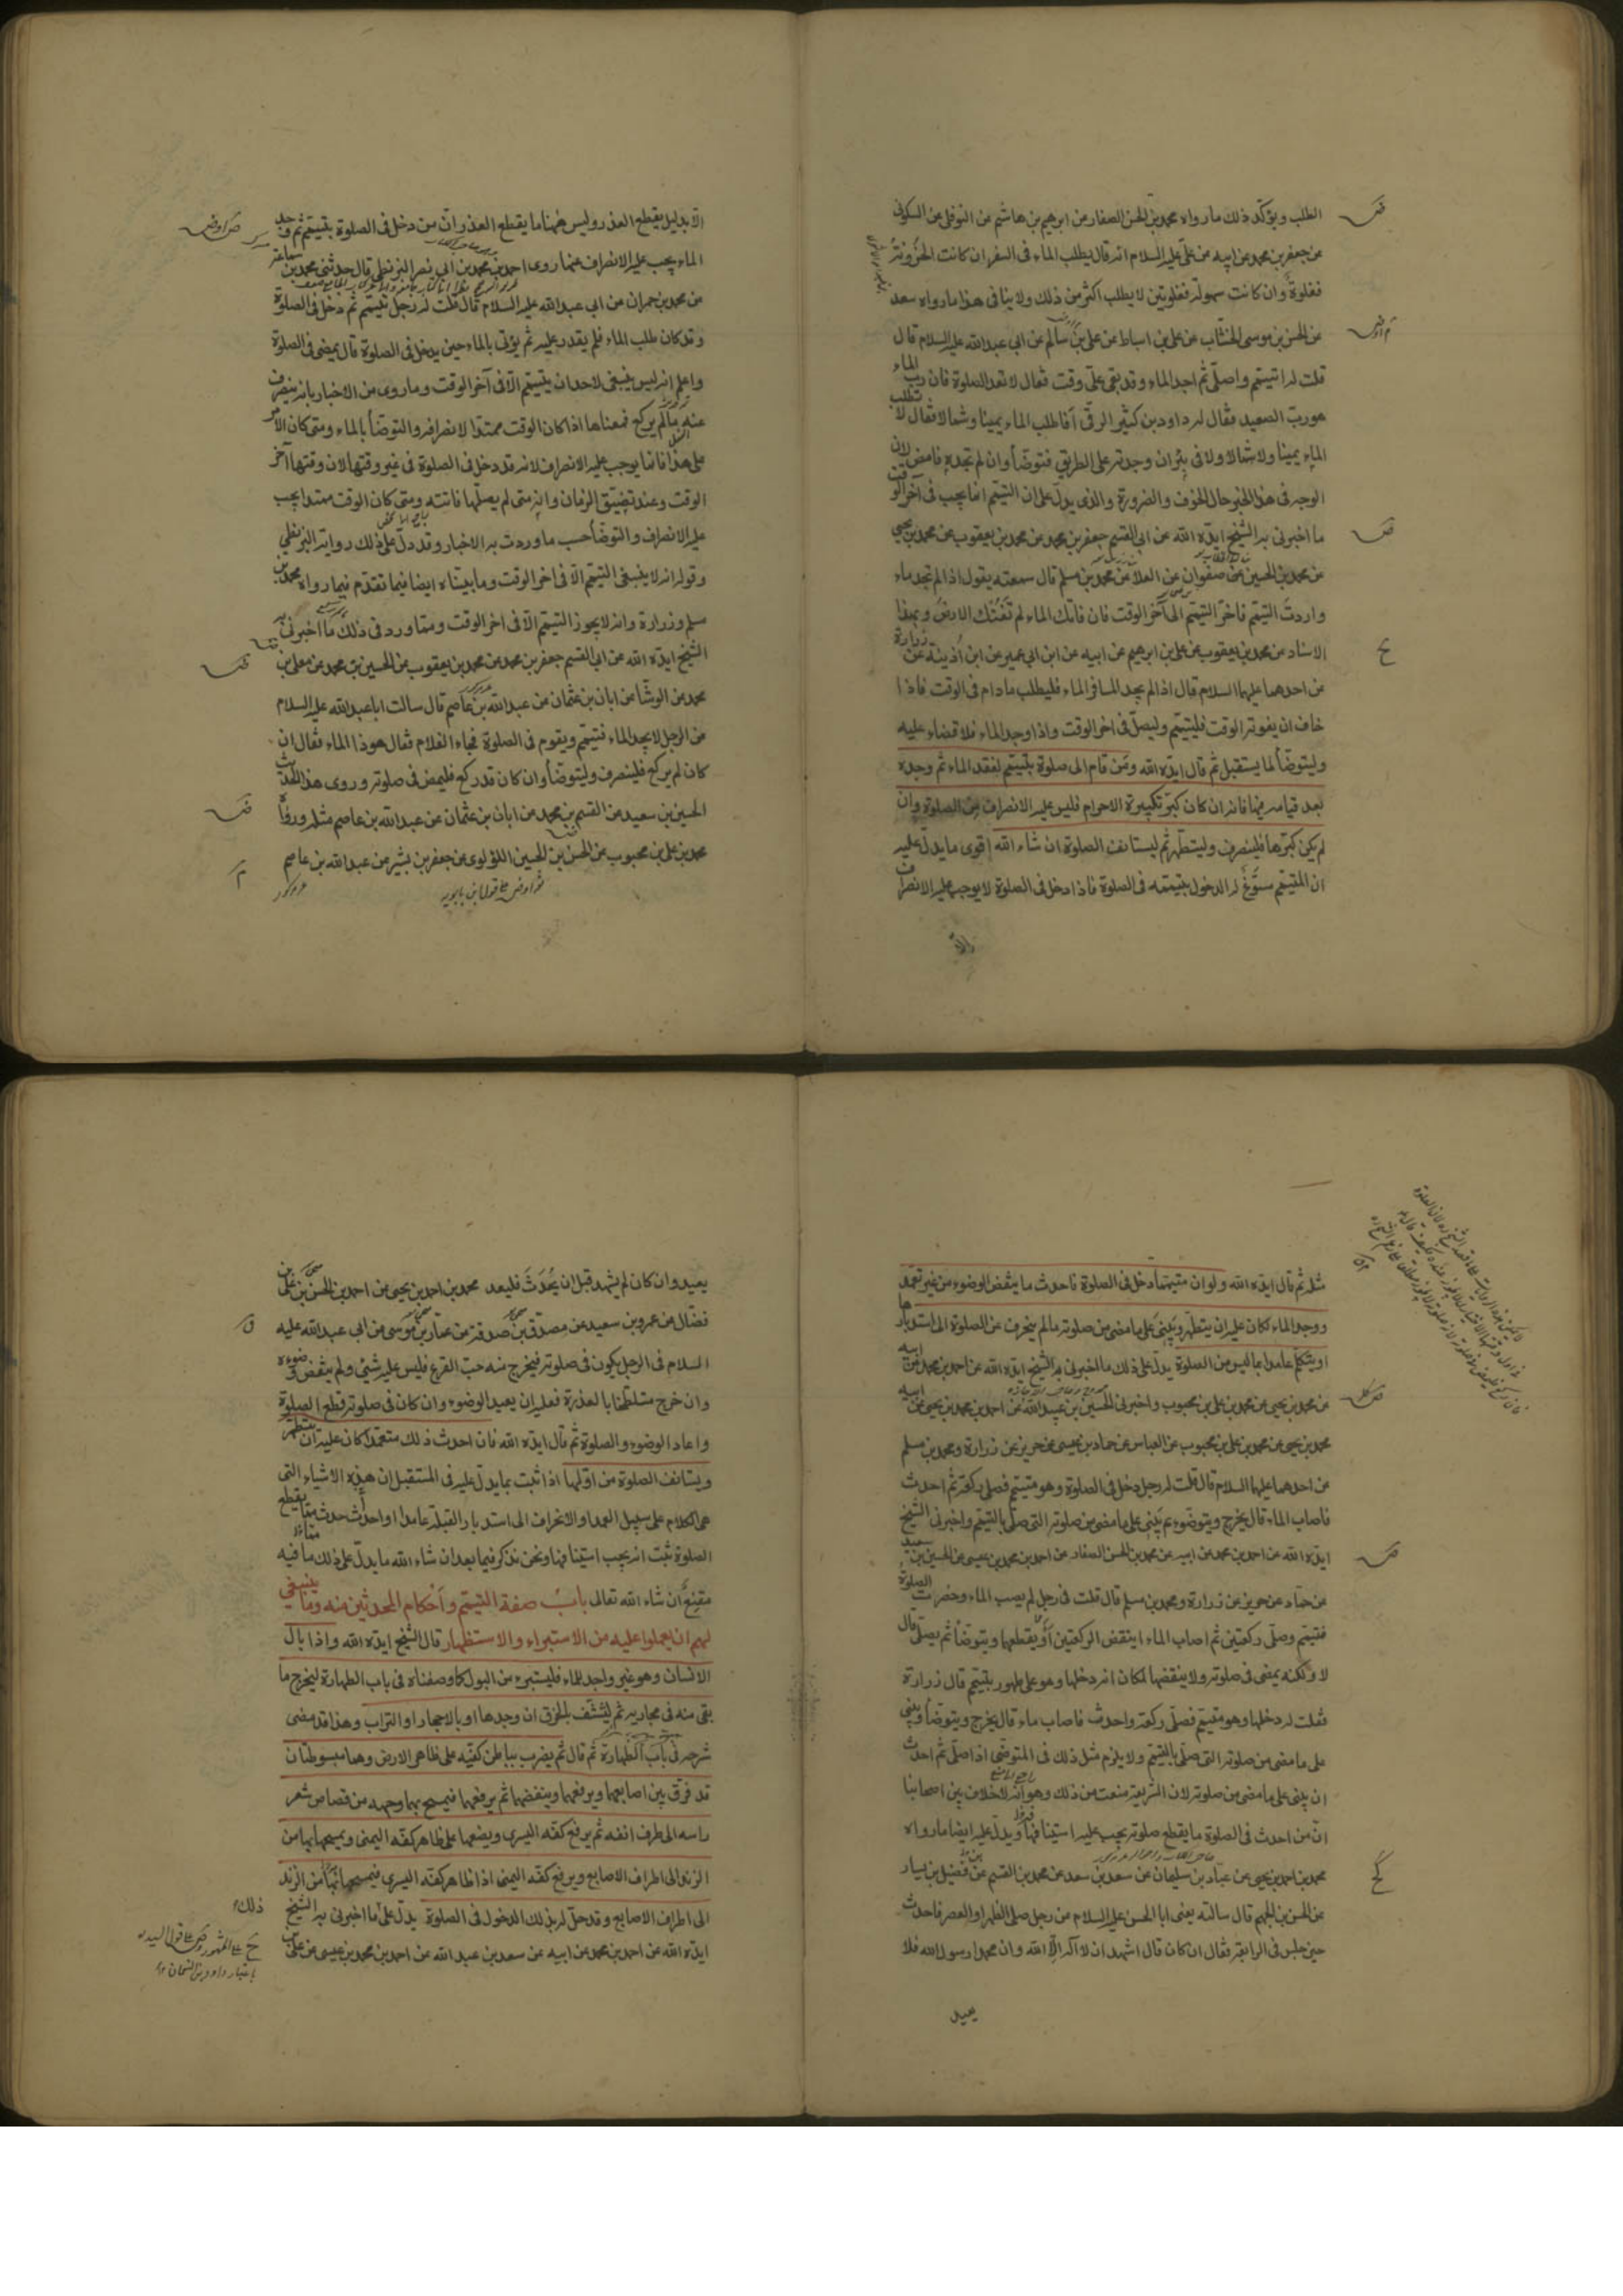 الطلب ويؤكد ذلك ما رواه محمد بن الحسن الصفار عن ابرهيم بن هاشم عن النوفلى عن السكونى
عن جعفر بن محمد عن ابيه عن على عليه السلام انه قال يطلب الماء فى السفر ان كانت الحزونة
فغلوة وان كانت سهولة فغلوتين لا يطلب اكثر من ذلك ولا ينافى هذا ما رواه سعد
عن الحسن بن موسى الخشاب عن على بن اسباط عن على بن سالم عن ابى عبدالله عليه السلام قال
قلت له اتيمم واصلى ثم اجد الماء وقد بقى على وقت فقال لا تعد الصلوة فان رب الماء
هو رب الصعيد فقال له داود بن كثير الرقى أفاطلب الماء يمينا وشمالا فقال لا تطلب
الماء يمينا ولا شمالا ولا فى بئر ان وجدته على الطريق فتوضأ وان لم تجده فامض لان
الوجه فى هذا الخبر حال الخوف والضرورة والذى يدل على ان التيمم انما يجب فى آخر الوقت
ما اخبرنى به الشيخ ايده الله عن ابى القسم جعفر بن محمد عن محمد بن يعقوب عن محمد بن يحيى
عن محمد بن الحسين عن صفوان عن العلا عن محمد بن مسلم قال سمعته يقول اذا لم تجد ماء
واردت التيمم فاخر التيمم الى آخر الوقت فان فاتك الماء لم تفتك الارض وبهذا
الاسناد عن محمد بن يعقوب عن على بن ابرهيم عن ابيه عن ابن ابى عمير عن ابن اذينة عن زرارة
عن احدهما عليهما السلام قال اذا لم يجد المسافر الماء فليطلب ما دام فى الوقت فاذا
خاف ان يفوته الوقت فليتيمم وليصل فى اخر الوقت واذا وجد الماء فلا قضاء عليه
وليتوضأ لما يستقبل ثم قال ايده الله ومن قام الى صلوة بتيمم لفقد الماء ثم وجده
بعد قيامه فيها فانه ان كان كبر تكبيرة الاحرام فليس عليه الانصراف من الصلوة وان
لم يكن كبرها فلينصرف وليتطهر ثم ليستانف الصلوة ان شاء الله اقوى ما يدل عليه
ان المتيمم سوغ له الدخول بتيممه فى الصلوة فاذا دخل فى الصلوة لا يوجب عليه الانصراف
الا
الا بدليل يقطع العذر وليس ههنا ما يقطع العذر وان من دخل فى الصلوة بتيمم ثم وجد
الماء يجب عليه الانصراف عنها روى احمد بن محمد بن ابى نصر البزنطى قال حدثنى محمد بن سماعة
عن محمد بن حمران عن ابى عبد الله عليه السلام قال قلت له رجل تيمم ثم دخل فى الصلوة
وقد كان طلب الماء فلم يقدر عليه ثم يؤتى بالماء حين يدخل فى الصلوة قال يمضى فى الصلوة
واعلم انه ليس ينبغى لاحد ان يتيمم الا فى آخر الوقت وما روى من الاخبار بانه ينصرف
عنه ما لم يركع فمعناها اذا كان الوقت ممتدا لانصرافه والتوضأ بالماء ومتى كان الامر
على هذا فانما يوجب عليه الانصراف لانه قد دخل فى الصلوة فى غير وقتها لان وقتها آخر
الوقت وعند تضيق الزمان وانه متى لم يصلها فاتته ومتى كان الوقت ممتدا يجب
عليه الانصراف والتوضأ حسب ما وردت به الاخبار وقد دل على ذلك رواية البزنطى
وقوله انه لا ينبغى التيمم الا فى اخر الوقت وما بيناه ايضا فيما تقدم فيما رواه محمد بن
مسلم وزرارة وانه لا يجوز التيمم الا فى اخر الوقت ومما ورد فى ذلك ما اخبرنى به
الشيخ ايده الله عن ابى القسم جعفر بن محمد عن محمد بن يعقوب عن الحسين بن محمد عن معلى بن
محمد عن الوشا عن ابان بن عثمان عن عبد الله بن عاصم قال سالت ابا عبد الله عليه السلام
عن الرجل لا يجد الماء فتيمم ويقوم فى الصلوة فجاء الغلام فقال هو ذا الماء فقال ان
كان لم يركع فلينصرف وليتوضأ وان كان قد ركع فليمض فى صلوته وروى هذا الحديث
الحسين بن سعيد عن القسم بن محمد عن ابان بن عثمان عن عبد الله بن عاصم مثله ورواه
محمد بن على بن محبوب عن الحسن بن الحسين اللؤلوى عن جعفر بن بشير عن عبد الله بن عاصم
مثله ثم قال ايده الله ولو ان متيمما دخل فى الصلوة فاحدث ما ينقض الوضوء من غير تعمد
ووجد الماء كان عليه ان يتطهر ويبنى على ما مضى من صلوته ما لم ينحرف عن الصلوة الى استدبارها
او يتكلم عامدا بما ليس من الصلوة يدل على ذلك ما اخبرنى به الشيخ ايده الله عن احمد بن محمد عن ابيه
عن محمد بن يحيى عن محمد بن على بن محبوب واخبرنى الحسين بن عبيد الله عن احمد بن محمد بن يحيى عن ابيه
محمد بن يحيى عن محمد بن على بن محبوب عن العباس عن حماد بن عيسى عن حريز عن زرارة ومحمد بن مسلم
عن احدهما عليهما السلام قال قلت له رجل دخل فى الصلوة وهو متيمم فصلى ركعة ثم احدث
فاصاب الماء قال يخرج ويتوضوء ثم يبنى على ما مضى من صلوته التى صلى بالتيمم واخبرنى الشيخ
ايده الله عن احمد بن محمد عن ابيه عن محمد بن الحسن الصفار عن احمد بن محمد بن عيسى عن الحسين بن سعيد
عن حماد عن حريز عن زرارة ومحمد بن مسلم قال قلت فى رجل لم يصب الماء وحضرت الصلوة
فتيمم وصلى ركعتين ثم اصاب الماء اينقض الركعتين أو يقطعهما ويتوضأ ثم يصلى قال
لا ولكنه يمضى فى صلوته ولا ينقضها لمكان انه دخلها وهو على طهور بتيمم قال زرارة
فقلت له دخلها وهو متيمم فصلى ركعة واحدث فاصاب ماء قال يخرج ويتوضأ ويبنى
على ما مضى من صلوته التى صلى بالتيمم ولا يلزم مثل ذلك فى المتوضى اذا صلى ثم احدث
ان يبنى على ما مضى من صلوته لان الشريعة منعت من ذلك وهو انه لا خلاف بين اصحابنا
ان من احدث فى الصلوة ما يقطع صلوته يجب عليه استينافها ويدل عليه ايضا ما رواه
محمد بن احمد بن يحيى عن عباد بن سليمان عن سعد بن سعد عن محمد بن القسم عن فضيل بن يسار
عن الحسن بن الجهم قال سالته يعنى ابا الحسن عليه السلام عن رجل صلى الظهر او العصر فاحدث
حين جلس فى الرابعة فقال ان كان قال اشهد ان لا اله الا الله وان محمدا رسول الله فلا
يعيد
يعيد وان كان لم يشهد قبل ان يحدث فليعد محمد بن احمد بن يحيى عن احمد بن الحسن بن على بن
فضال عن عمرو بن سعيد عن مصدق بن صدقة عن عمار بن موسى عن ابى عبد الله عليه
السلام فى الرجل يكون فى صلوته فيخرج منه حب القرع فليس عليه شئ ولم ينقض وضوءه
وان خرج متلطخا بالعذرة فعليه ان يعيد الوضوء وان كان فى صلوته قطع الصلوة
واعاد الوضوء والصلوة ثم قال ايده الله فان احدث ذلك متعمدا كان عليه ان يتطهر
ويستانف الصلوة من اولها اذا ثبت بما يدل عليه فى المستقبل ان هذه الاشياء التى
هى الكلام على سبيل العمد او الانحراف الى استدبار القبلة عامدا او احدث حدث مما يقطع
الصلوة ثبت انه يجب استينافها ونحن نذكر فيما بعد ان شاء الله ما يدل على ذلك ما فيه
مقنع ان شاء الله تعالى باب صفة التيمم واحكام المحدثين منه وما ينبغى
لهم ان يعملوا عليه من الاستبراء والاستظهار قال الشيخ ايده الله واذا بال
الانسان وهو غير واجد للماء فليستبرء من البول كما وصفناه فى باب الطهارة ليخرج ما
بقى منه فى مجاريه ثم ليتنشف بالخرق ان وجدها او بالاحجار او التراب وهذا قد مضى
شرحه فى باب الطهارة ثم قال ثم يضرب بباطن كفيه على ظاهر الارض وهما مبسوطتان
قد فرق بين اصابعهما ويرفعهما وينفضهما ثم يرفعهما فيمسح بهما وجهه من قصاص شعر
راسه الى طرف انفه ثم يرفع كفه اليسرى ويضعها على ظاهر كفه اليمنى ويمسحها بها من
الزند الى اطراف الاصابع ويرفع كفه اليمنى اذا ظاهر كفه اليسرى فيمسحها بها من الزند
الى اطراف الاصابع وقد حل له بذلك الدخول فى الصلوة يدل على ما اخبرنى به الشيخ
ذلك
ايده الله عن احمد بن محمد عن ابيه عن سعد بن عبد الله عن احمد بن محمد بن عيسى عن على بن